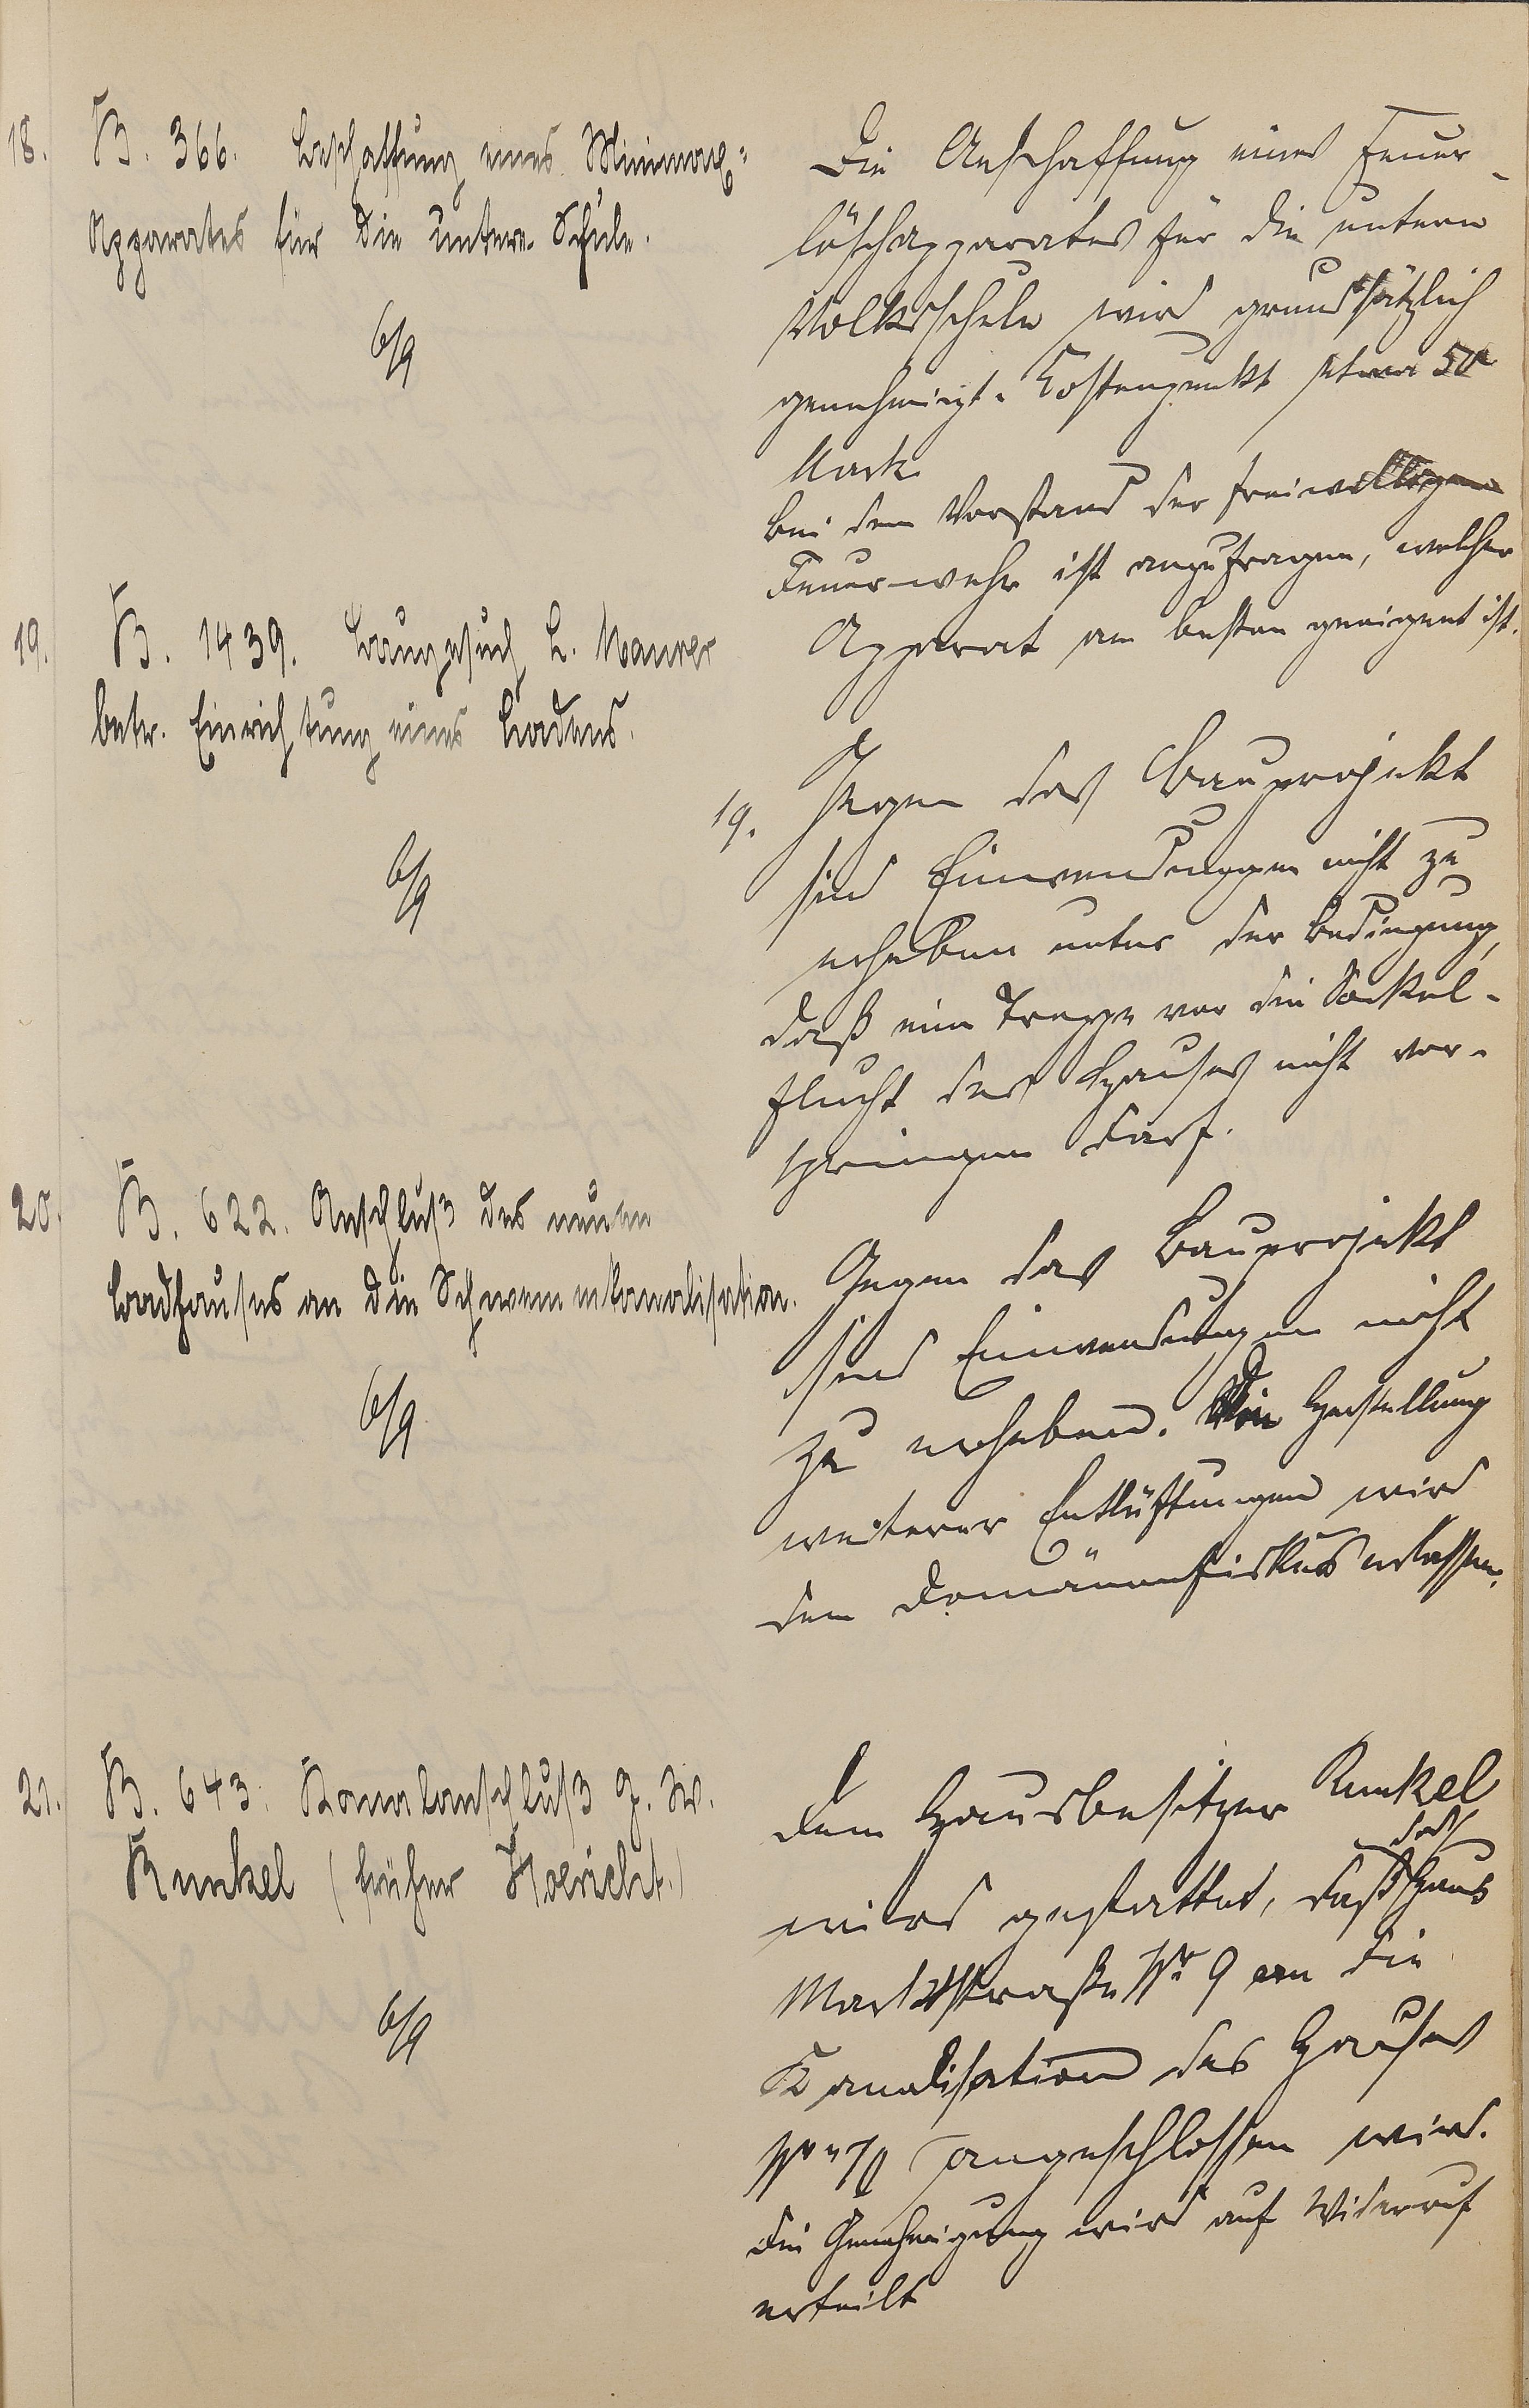 18. B. 366. Beschaffung eines Minimax=
Apparates für die untere Schule.
6/9
Die Anschaffung eines Feuer-
löschapparates für die untere
Volksschule wird grundsätzlich
genehmigt. Kostenpunkt etwa 50
Mark
bei dem Vorstand der freiwilligen
Feuerwehr ist anzufragen, welcher
Apparat am besten geeignet ist.
19. B. 1439. Baugesuch L. Maurer
betr. Einrichtung eines Ladens.
6/9
19. Gegen das Bauprojekt
sind Einwendungen nicht zu
erheben unter der Bedingung,
daß eine Treppe vor die Sockel-
flucht des Hauses nicht vor-
springen darf.
20. B. 622. Anschluß des neuen
Badhauses an die Schwemmkanalisation.
6/9
Gegen das Bauprojekt
sind Einwendungen nicht
zu erheben. Die Herstellung
weiterer Entlüftungen wird
dem Domänenfiskus erlassen.
21. B. 643. Kanalanschluß G. W.
Runkel (früher
6/9
Dem Hausbesitzer Runkel
wird gestattet, daß das Haus
Marktstraße Nr 9 an die
Kanalisation des Hauses
Nr angeschlossen wird.
Die Genehmigung wird auf Widerruf
erteilt